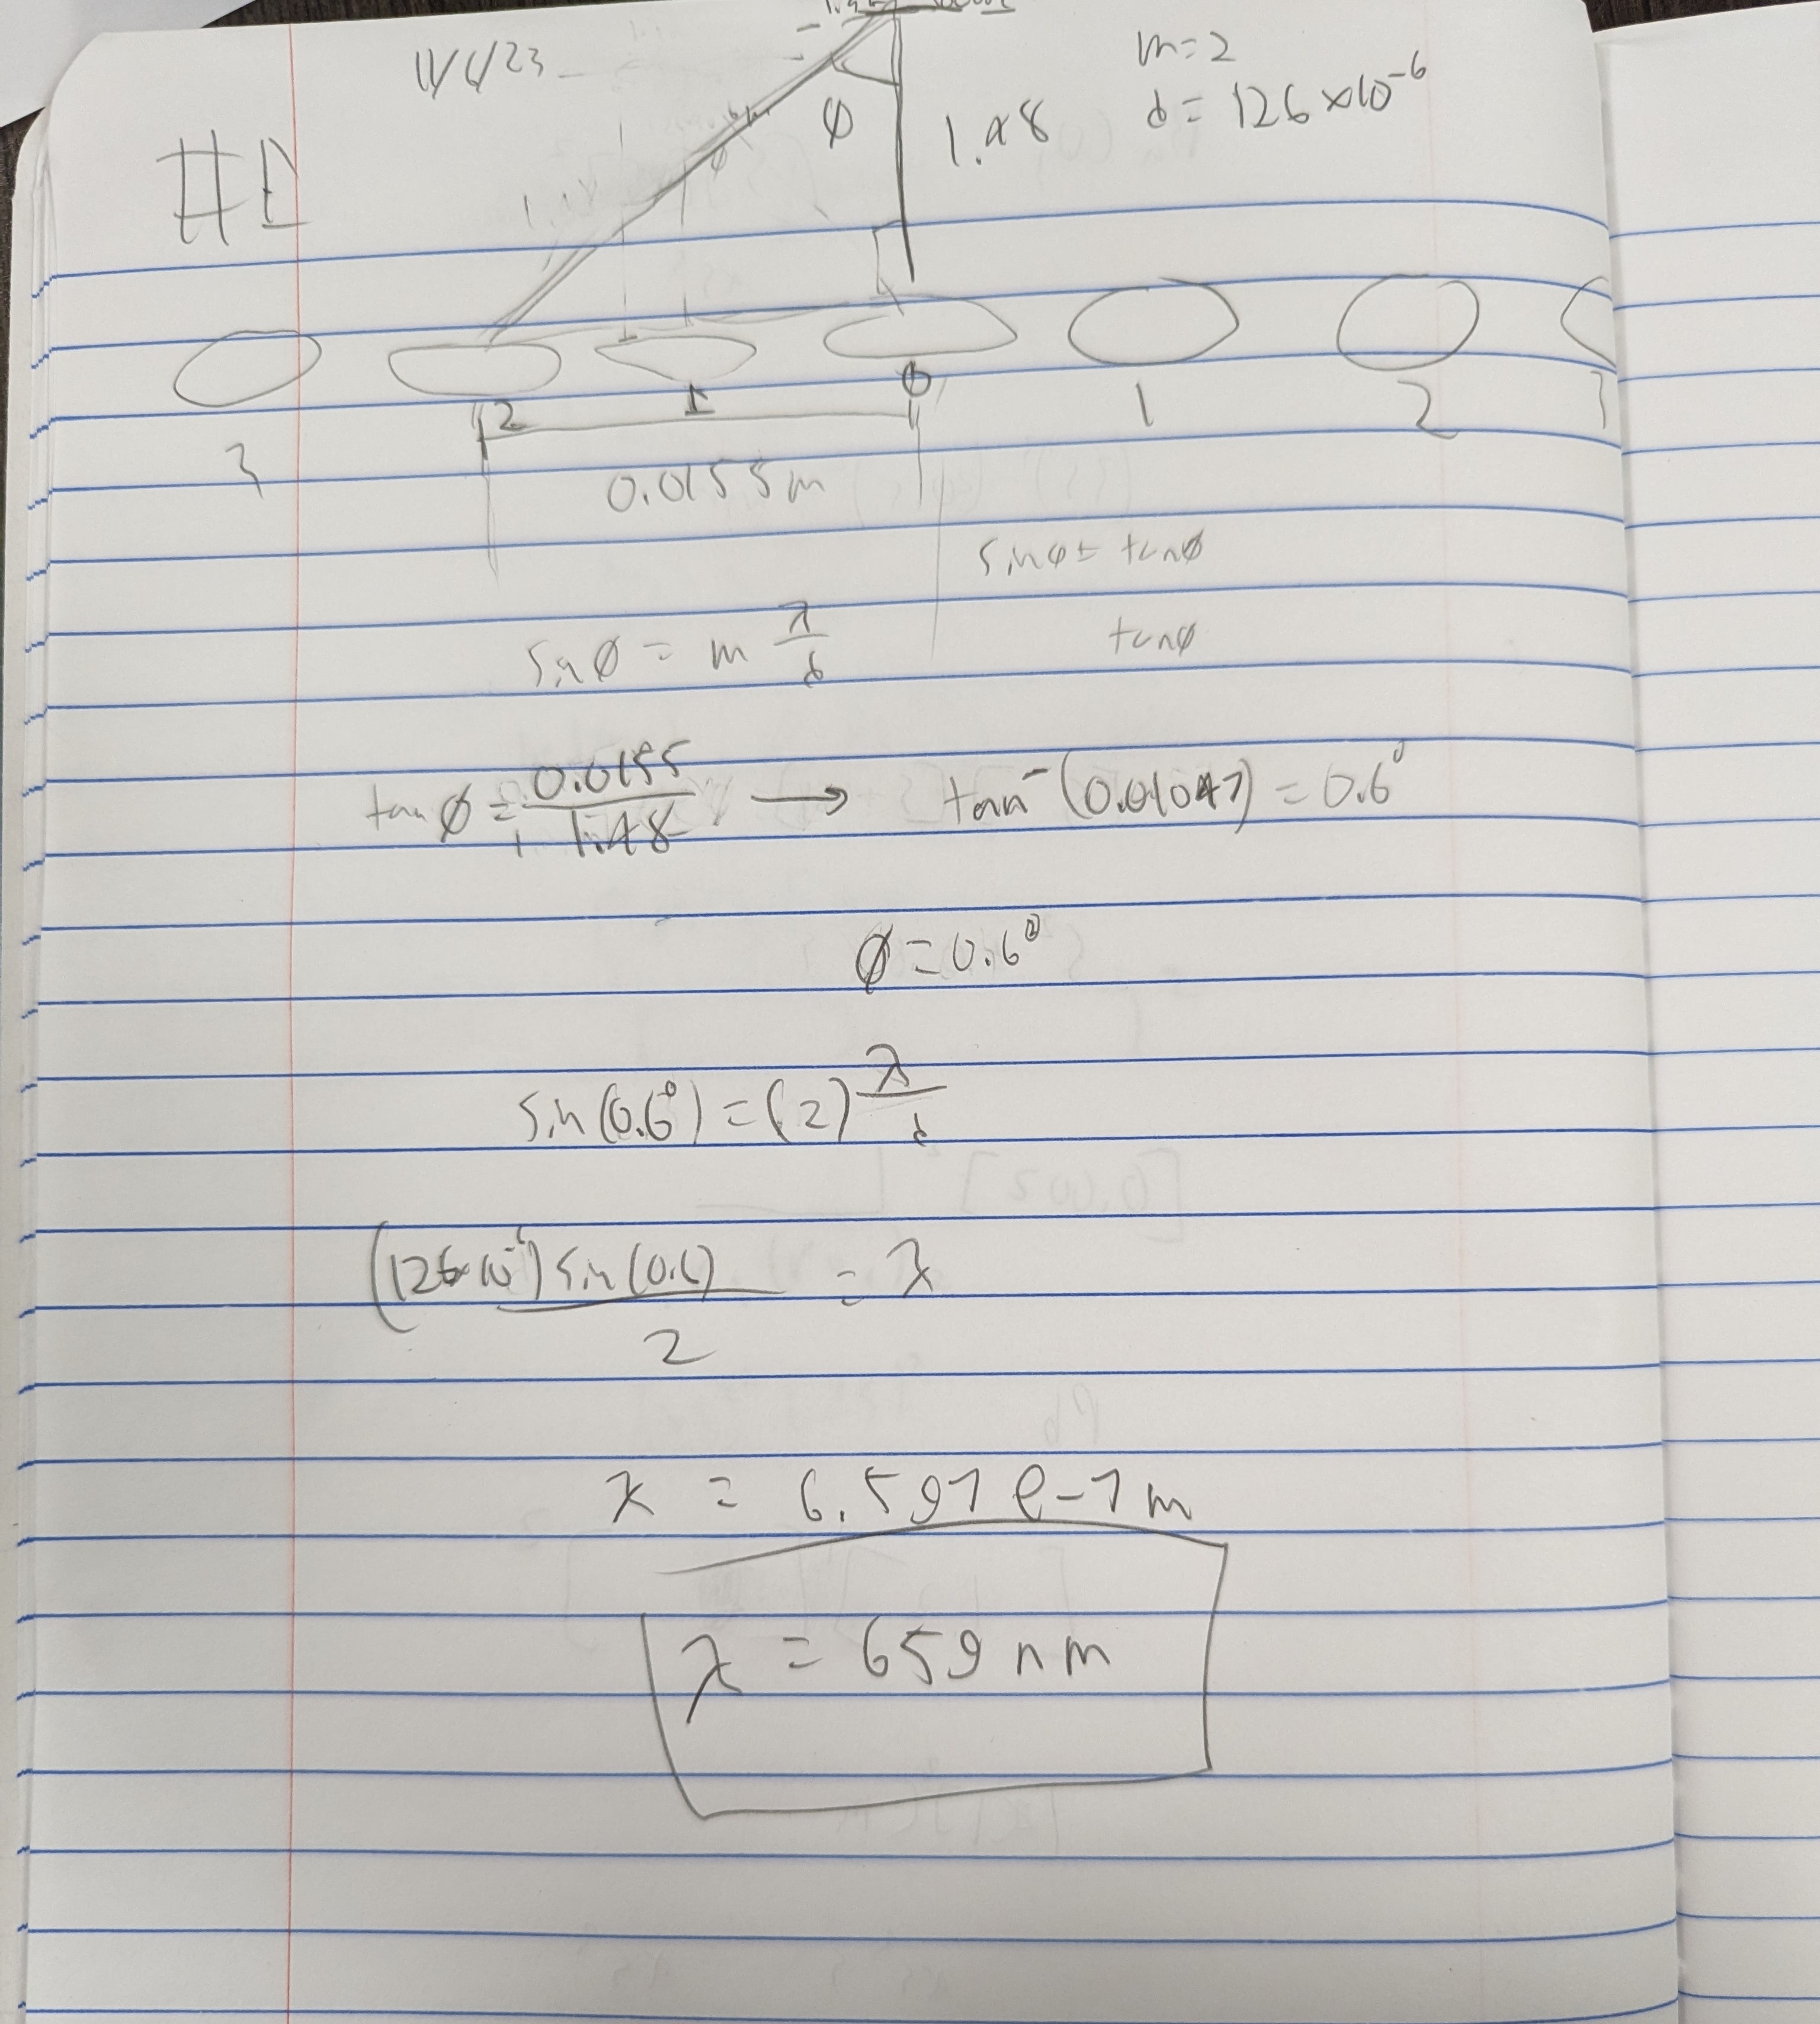 11/6/23
m=2
#1
φ
1.48
d = 126 x10⁻⁶
3 2 1 0 1 2 3
0.0155m
sinφ = tanφ
sinφ = m λ/d
tanφ
tanφ = 0.0155/1.48 → tan⁻(0.01047) = 0.6°
φ = 0.6°
sin(0.6°) = (2) λ/d
(126x10⁻⁶) sin(0.6)/2 = λ
λ = 6.597 e-7 m
λ = 659 nm